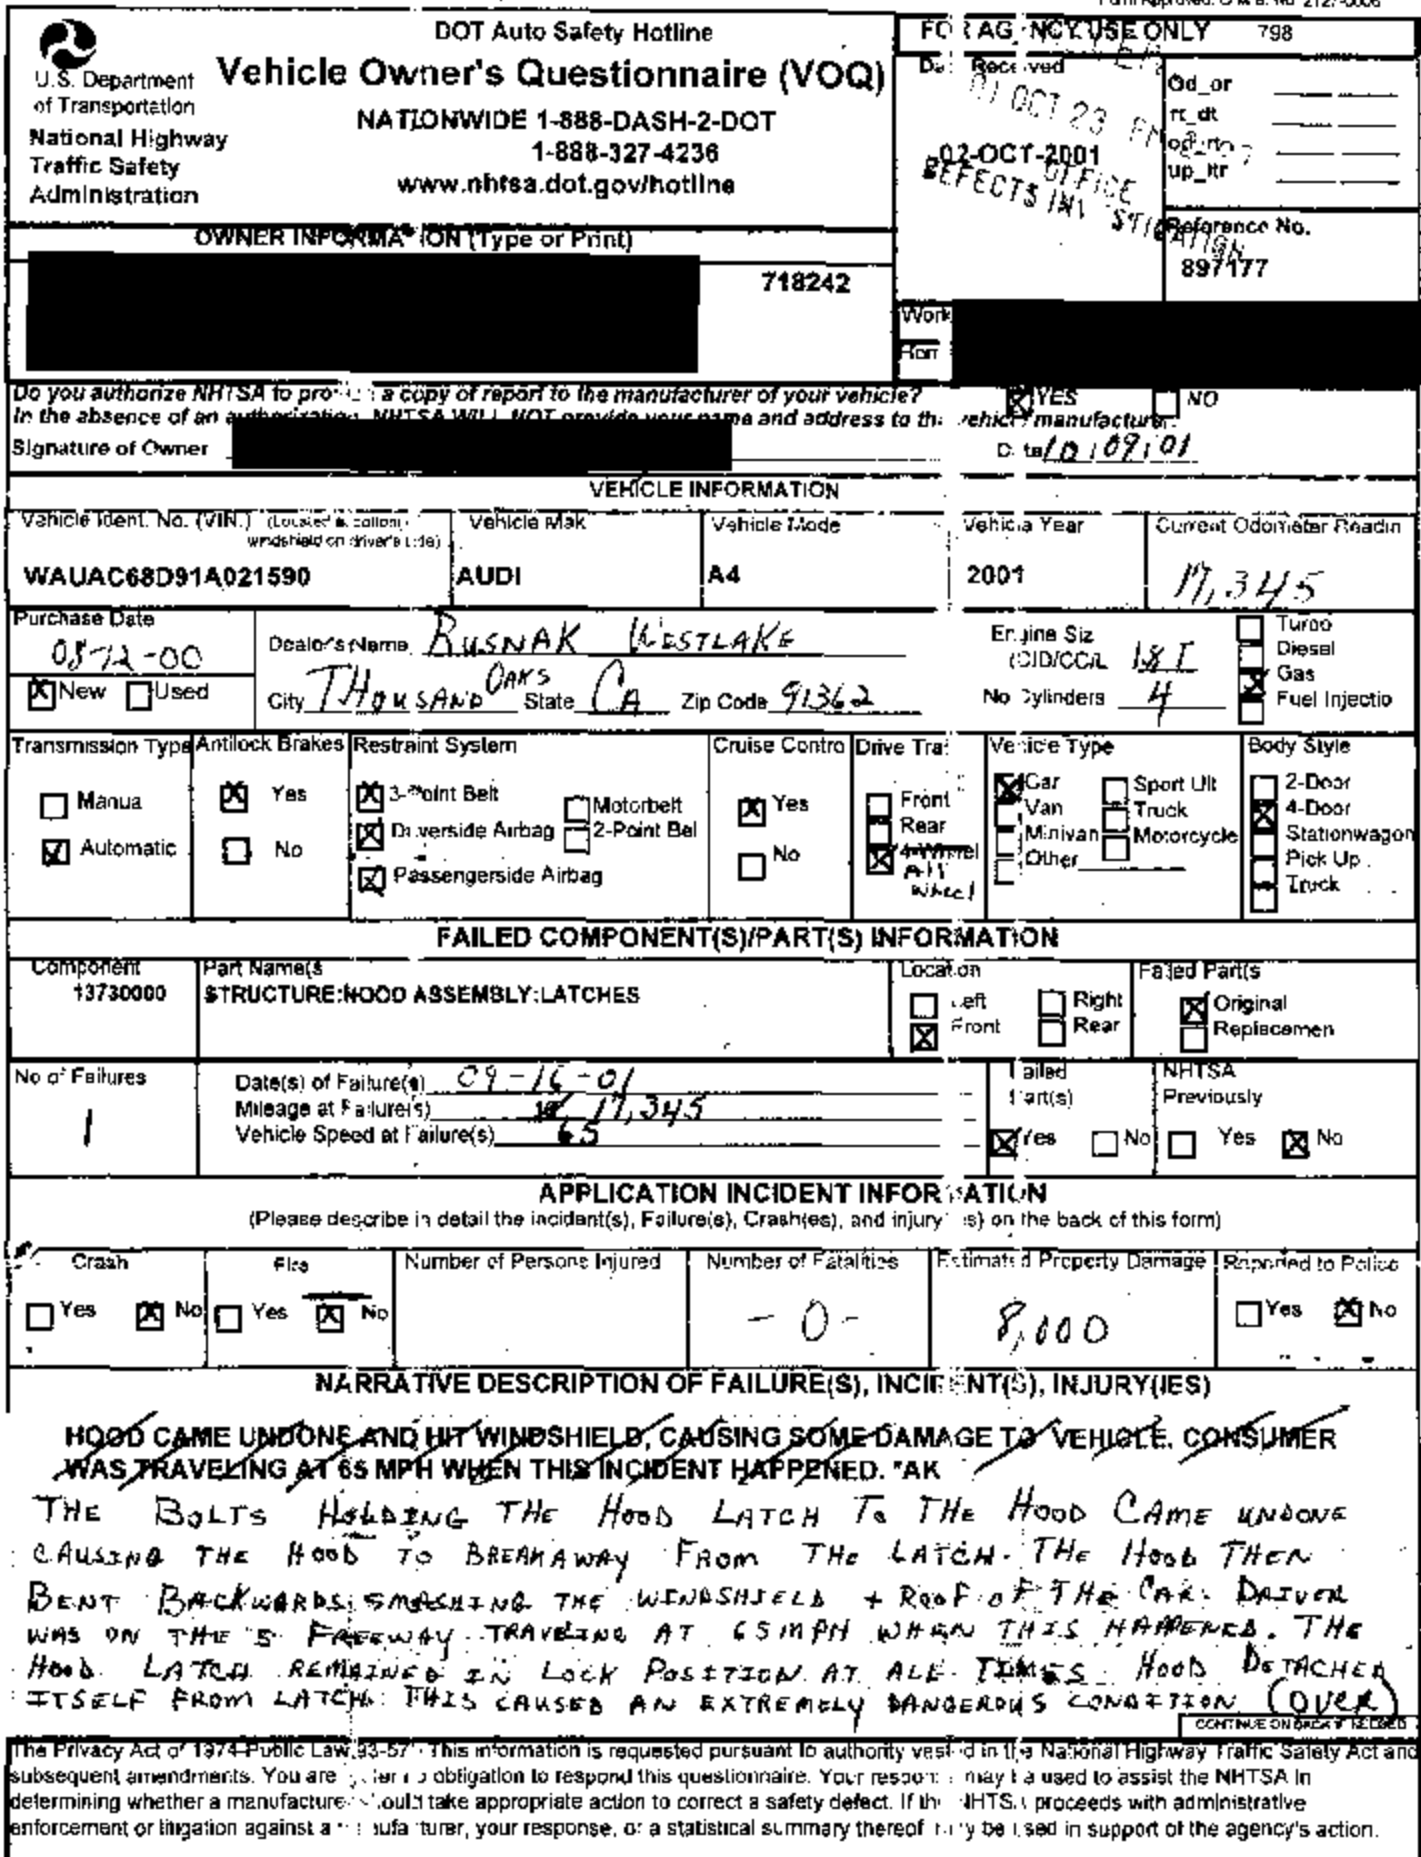 DOT Auto Safety Hotline
Vehicle Owner's Questionnaire (VOQ)
NATIONWIDE 1-888-DASH-2-DOT
1-888-327-4236
www.nhtsa.dot.gov/hotline
U.S. Department
of Transportation
National Highway
Traffic Safety
Administration
FOR AGENCY USE ONLY 798
Received
01 OCT 23
02-OCT-2001
OFFICE
DEFECTS INVESTIGATION
Od_or
rt_dt
od_rt
up_ltr
Reference No.
897177
OWNER INFORMATION (Type or Print)
718242
Work
Do you authorize NHTSA to provide a copy of report to the manufacturer of your vehicle? YES NO
In the absence of an authorization, NHTSA WILL NOT provide your name and address to the vehicle manufacturer.
Signature of Owner Date 10/09/01
VEHICLE INFORMATION
Vehicle Ident. No. (VIN.) (Located at bottom of windshield on driver's side)
WAUAC68D91A021590
Vehicle Mak
AUDI
Vehicle Mode
A4
Vehicle Year
2001
Current Odometer Readin
17,345
Purchase Date
08-12-00
New Used
Dealer's Name RUSNAK WESTLAKE
City THOUSAND OAKS State CA Zip Code 91362
Engine Siz
(CID/CC/L 1.8T
No Cylinders 4
Turbo
Diesel
Gas
Fuel Injectio
Transmission Type
Manua
Automatic
Antilock Brakes
Yes
No
Restraint System
3-Point Belt
Driverside Airbag
Passengerside Airbag
Motorbelt
2-Point Bel
Cruise Contro
Yes
No
Drive Tra
Front
Rear
4-Wheel
All Wheel
Vehicle Type
Car
Van
Minivan
Other
Sport Ult
Truck
Motorcycle
Body Style
2-Door
4-Door
Stationwagon
Pick Up
Truck
FAILED COMPONENT(S)/PART(S) INFORMATION
Component
13730000
Part Name(s
STRUCTURE:HOOD ASSEMBLY:LATCHES
Location
Left Right
Front Rear
Failed Part(s
Original
Replacemen
No of Failures
1
Date(s) of Failure(s) 09-16-01
Mileage at Failure(s) 17,345
Vehicle Speed at Failure(s) 65
Failed
Part(s)
Yes No
NHTSA
Previously
Yes No
APPLICATION INCIDENT INFORMATION
(Please describe in detail the incident(s), Failure(s), Crash(es), and injury(ies) on the back of this form)
Crash
Yes No
Fire
Yes No
Number of Persons Injured
Number of Fatalities
- 0 -
Estimated Property Damage
8,000
Reported to Police
Yes No
NARRATIVE DESCRIPTION OF FAILURE(S), INCIDENT(S), INJURY(IES)
HOOD CAME UNDONE AND HIT WINDSHIELD, CAUSING SOME DAMAGE TO VEHICLE. CONSUMER
WAS TRAVELING AT 65 MPH WHEN THIS INCIDENT HAPPENED. *AK
THE BOLTS HOLDING THE HOOD LATCH TO THE HOOD CAME UNDONE
CAUSING THE HOOD TO BREAKAWAY FROM THE LATCH. THE HOOD THEN
BENT BACKWARDS SMASHING THE WINDSHIELD + ROOF OF THE CAR. DRIVER
WAS ON THE 5 FREEWAY TRAVELING AT 65MPH WHEN THIS HAPPENED. THE
HOOD LATCH REMAINED IN LOCK POSITION AT ALL TIMES. HOOD DETACHED
ITSELF FROM LATCH. THIS CAUSED AN EXTREMELY DANGEROUS CONDITION (OVER)
CONTINUE ON BACK IF NEEDED
The Privacy Act of 1974-Public Law 93-57 This information is requested pursuant to authority vested in the National Highway Traffic Safety Act and
subsequent amendments. You are under no obligation to respond this questionnaire. Your response may be used to assist the NHTSA in
determining whether a manufacturer should take appropriate action to correct a safety defect. If the NHTSA proceeds with administrative
enforcement or litigation against a manufacturer, your response, or a statistical summary thereof may be used in support of the agency's action.